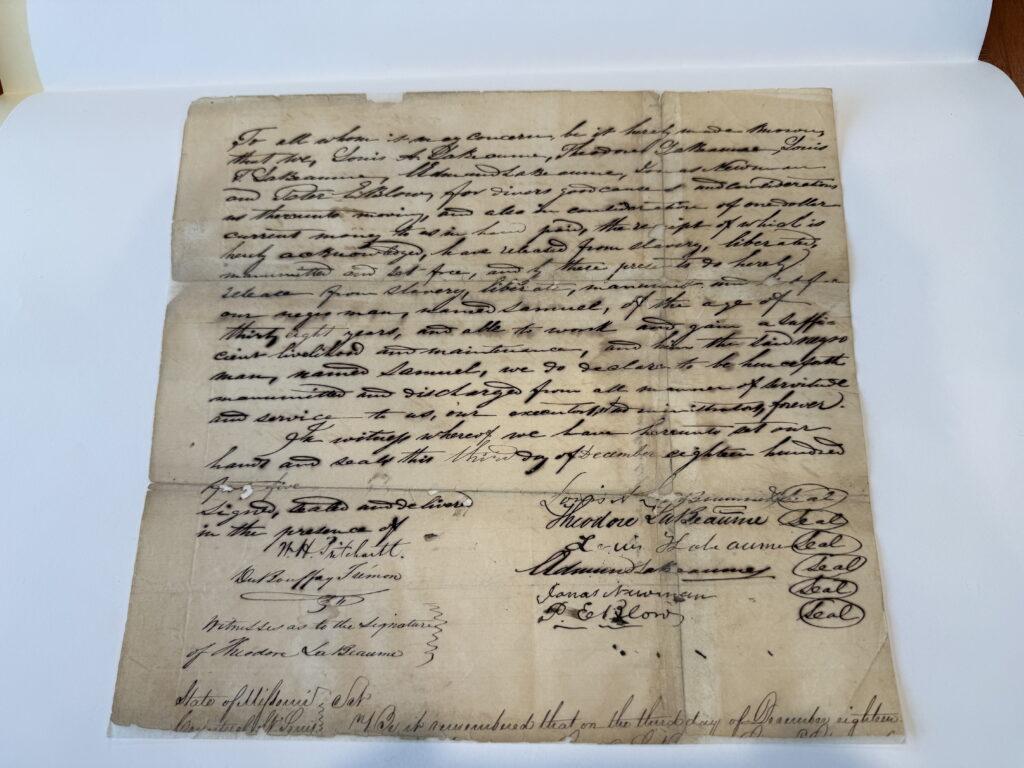 To all whom it may concern, be it hereby made known,
that we, Louis A. LaBeaume, Theodore LaBeaume, Louis
T. LaBeaume, Edmund LaBeaume, Jonas Newman
and Peter E. Blow, for divers good causes and considerations
us thereunto moving, and also in consideration of one dollar
current money to us in hand paid, the receipt of which is
hereby acknowledged, have released from slavery, liberated,
manumitted and set free, and by these presents do hereby
release from slavery, liberate, manumit and set free
our negro man, named Samuel, of the age of
thirty eight years, and able to work and gain a suffi-
cient livelihood and maintenance, and him the said negro
man, named Samuel, we do declare to be henceforth
manumitted and discharged from all manner of servitude
and service to us, our executors, administrators, forever.
In witness whereof we have hereunto set our
hands and seals this third day of December eighteen hundred
five
Signed, sealed and delivered
in the presence of
W. H. Pritchartt.
DuBouffay Trémon
Witnesses as to the signature
of Theodore LaBeaume
Louis A. Seal
Theodore LaBeaume Seal
Louis T LaBeaume Seal
Edmund LaBeaume Seal
Jonas Newman Seal
P. E. Blow Seal
State of Missouri, Sct
County of St Louis Be it remembered that on the third day of December eighteen